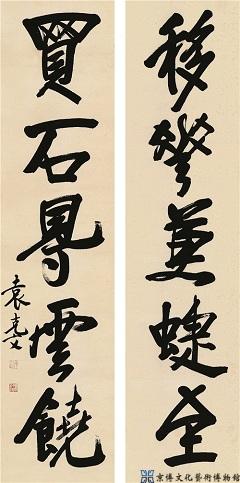 移華兼蜨至
買石㝵雲饒
袁克文
京博文化藝術博物館